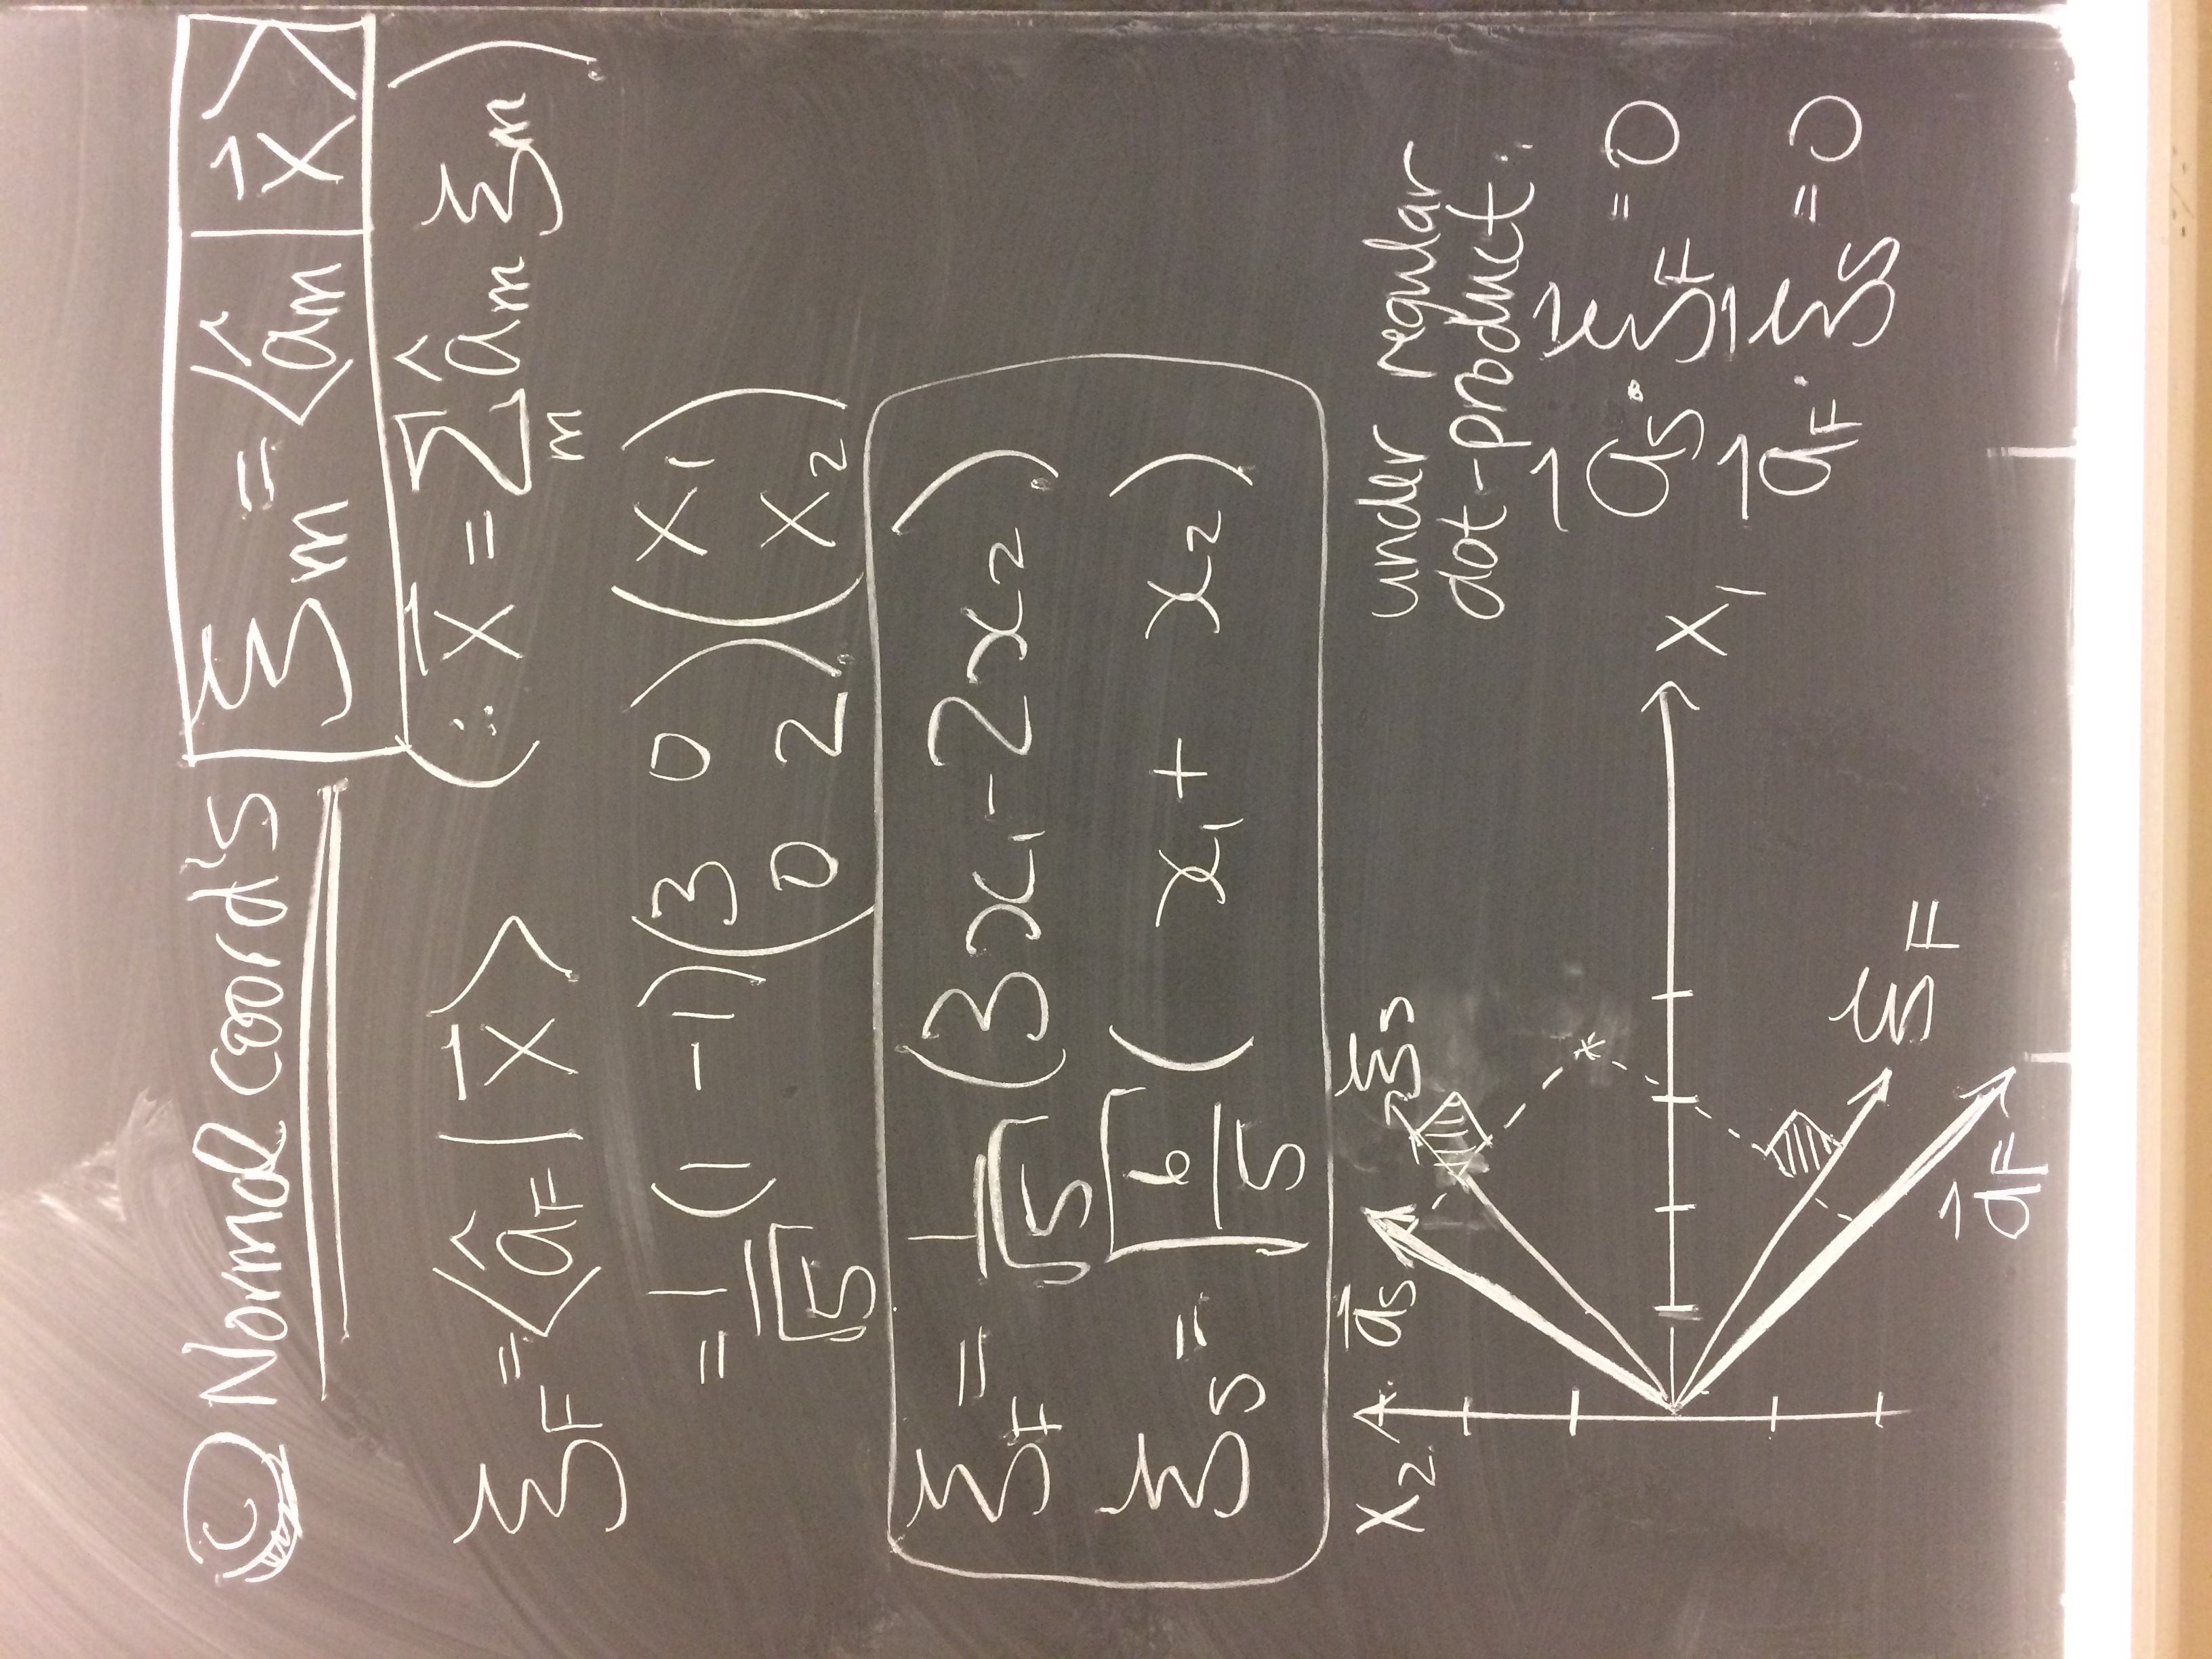 Ⓒ Normal coord's | ξm = ⟨âm | x⃗⟩
ξF = ⟨âF | x⃗⟩ (∵ x⃗ = Σm âm ξm)
= 1/√5 (1 -1) (3 0; 0 2) (x1; x2)
ξF = 1/√5 (3x1 - 2x2)
ξs = √(6/5) (x1 + x2)
under regular
dot-product:
a⃗s · ξ⃗F = 0
a⃗F · ξ⃗s = 0
x2
a⃗s
ξs
x1
ξF
a⃗F